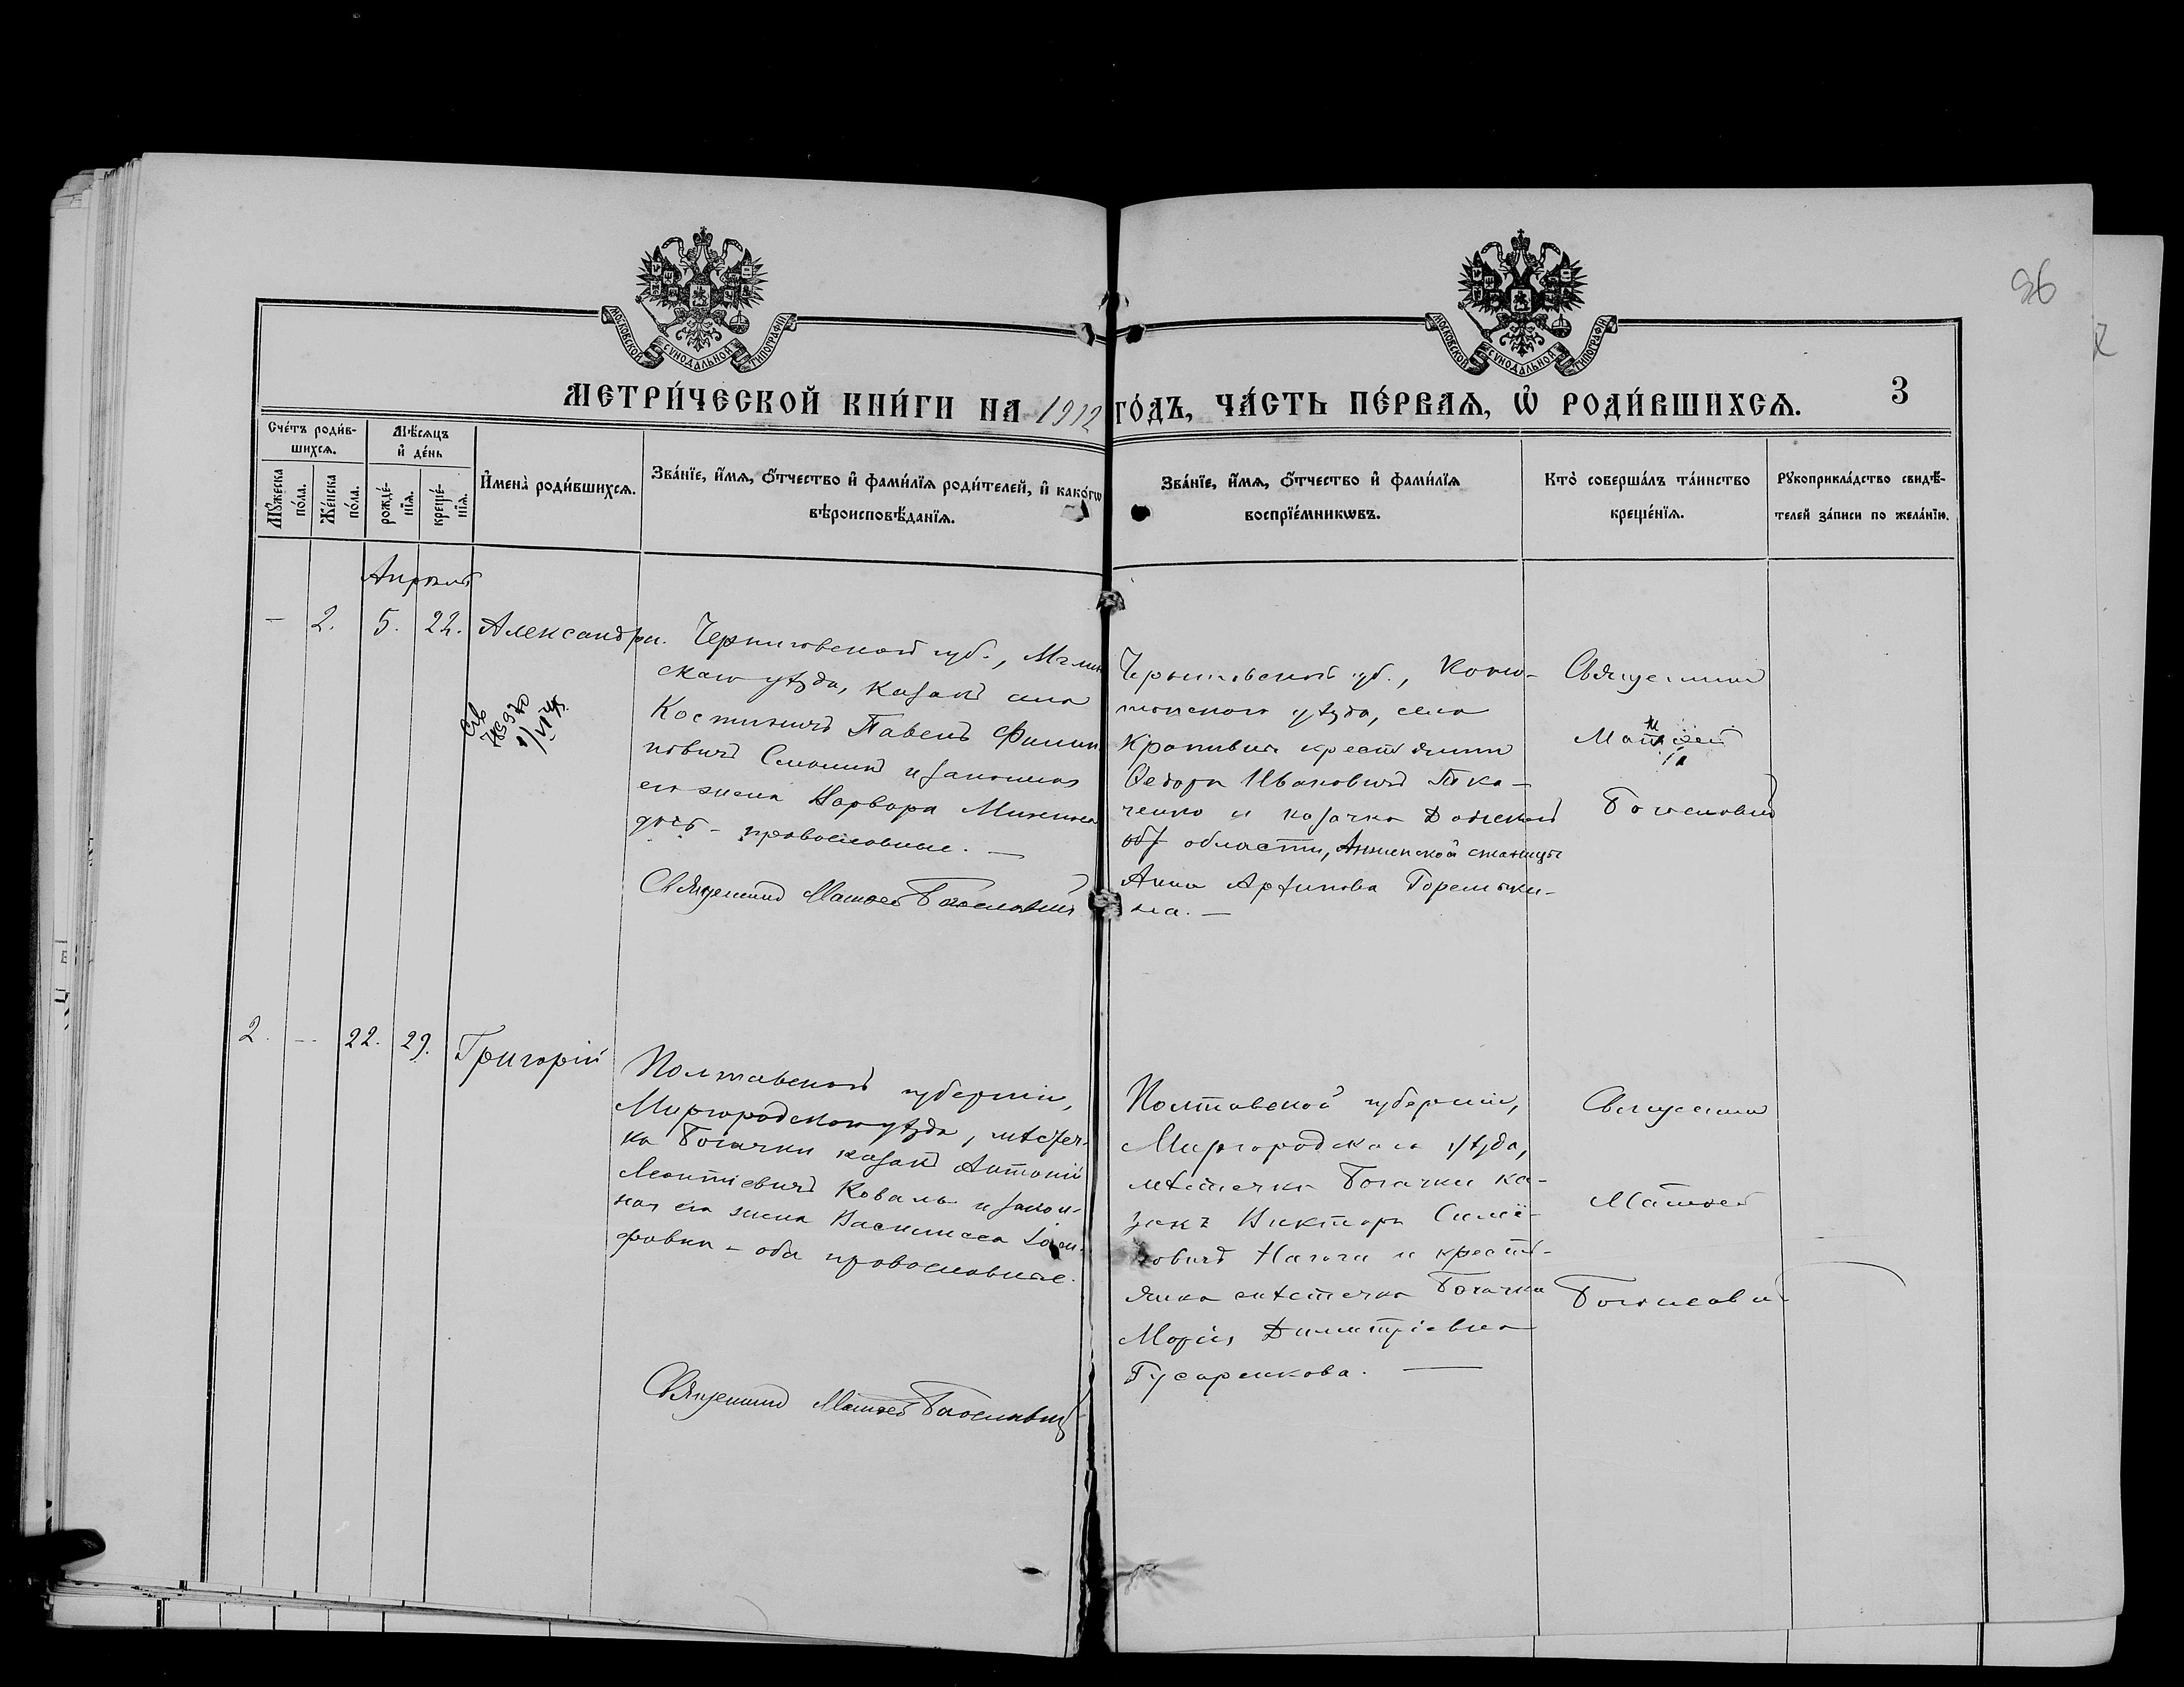 96
МОСКОВСКОЙ СУНОДАЛЬНОЙ ТИПОГРАФІИ
МОСКОВСКОЙ СУНОДАЛЬНОЙ ТИПОГРАФІИ
МЕТРИ́ЧЕСКОЙ КНИ́ГИ НА 1912 ГО́ДЪ, ЧА́СТЬ ПЕ́РВАѦ, Ѡ҆ РОДИ́ВШИХСѦ.
3
Сче́тъ роди́в-
шихсѧ.
Мꙋ́жеска
по́ла.
Же́нска
по́ла.
Мѣ́сѧцъ
и҆ де́нь
рожде́-
нїѧ.
креще́-
нїѧ.
И҆мена̀ роди́вшихсѧ.
Зва́нїе, и҆́мѧ, ѻ҆́тчество и҆ фами́лїѧ роди́телей, и҆ како́гѡ
вѣроисповѣ́данїѧ.
Зва́нїе, и҆́мѧ, ѻ҆́тчество и҆ фами́лїѧ
воспрїе́мникѡвъ.
Кто̀ соверша́лъ та́инство
креще́нїѧ.
Рꙋкоприкла́дство свидѣ́-
телей за́писи по жела́нїю.
Апрѣль
— 2. 5. 22. Александра.
Черниговской губ., Мглин
скаго уѣзда, казакъ села
Костиничъ Павелъ Филип
повичъ Слюнинъ и законная
его жена Варвара
православные. —
Священникъ Матѳей Богословскій
Черниговской губ., Коно-
топскаго уѣзда, села
Кропивна крестьянинъ
Ѳедоръ Ивановичъ Тка-
ченко и казачка Донской
области, Анненской станицы
Анна Архипова Горемыки-
на. —
Священникъ
Матѳей
Богословскій
2. — 22. 29. Григорій
Полтавской губерніи,
Миргородскаго уѣзда, мѣстеч-
ка Богачки казакъ Антоній
Леонтіевичъ Коваль и закон-
ная его жена Василисса
фовна – оба православные.
Священникъ Матѳей Богословскій
Полтавской губерніи,
Миргородскаго уѣзда,
мѣстечка Богачки ка-
закъ Викторъ Симе-
новичъ Нагога и кресть-
янка мѣстечка Богачки
Марія Димитріевна
Гусаренкова. —
Священникъ
Матѳей
Богословскій